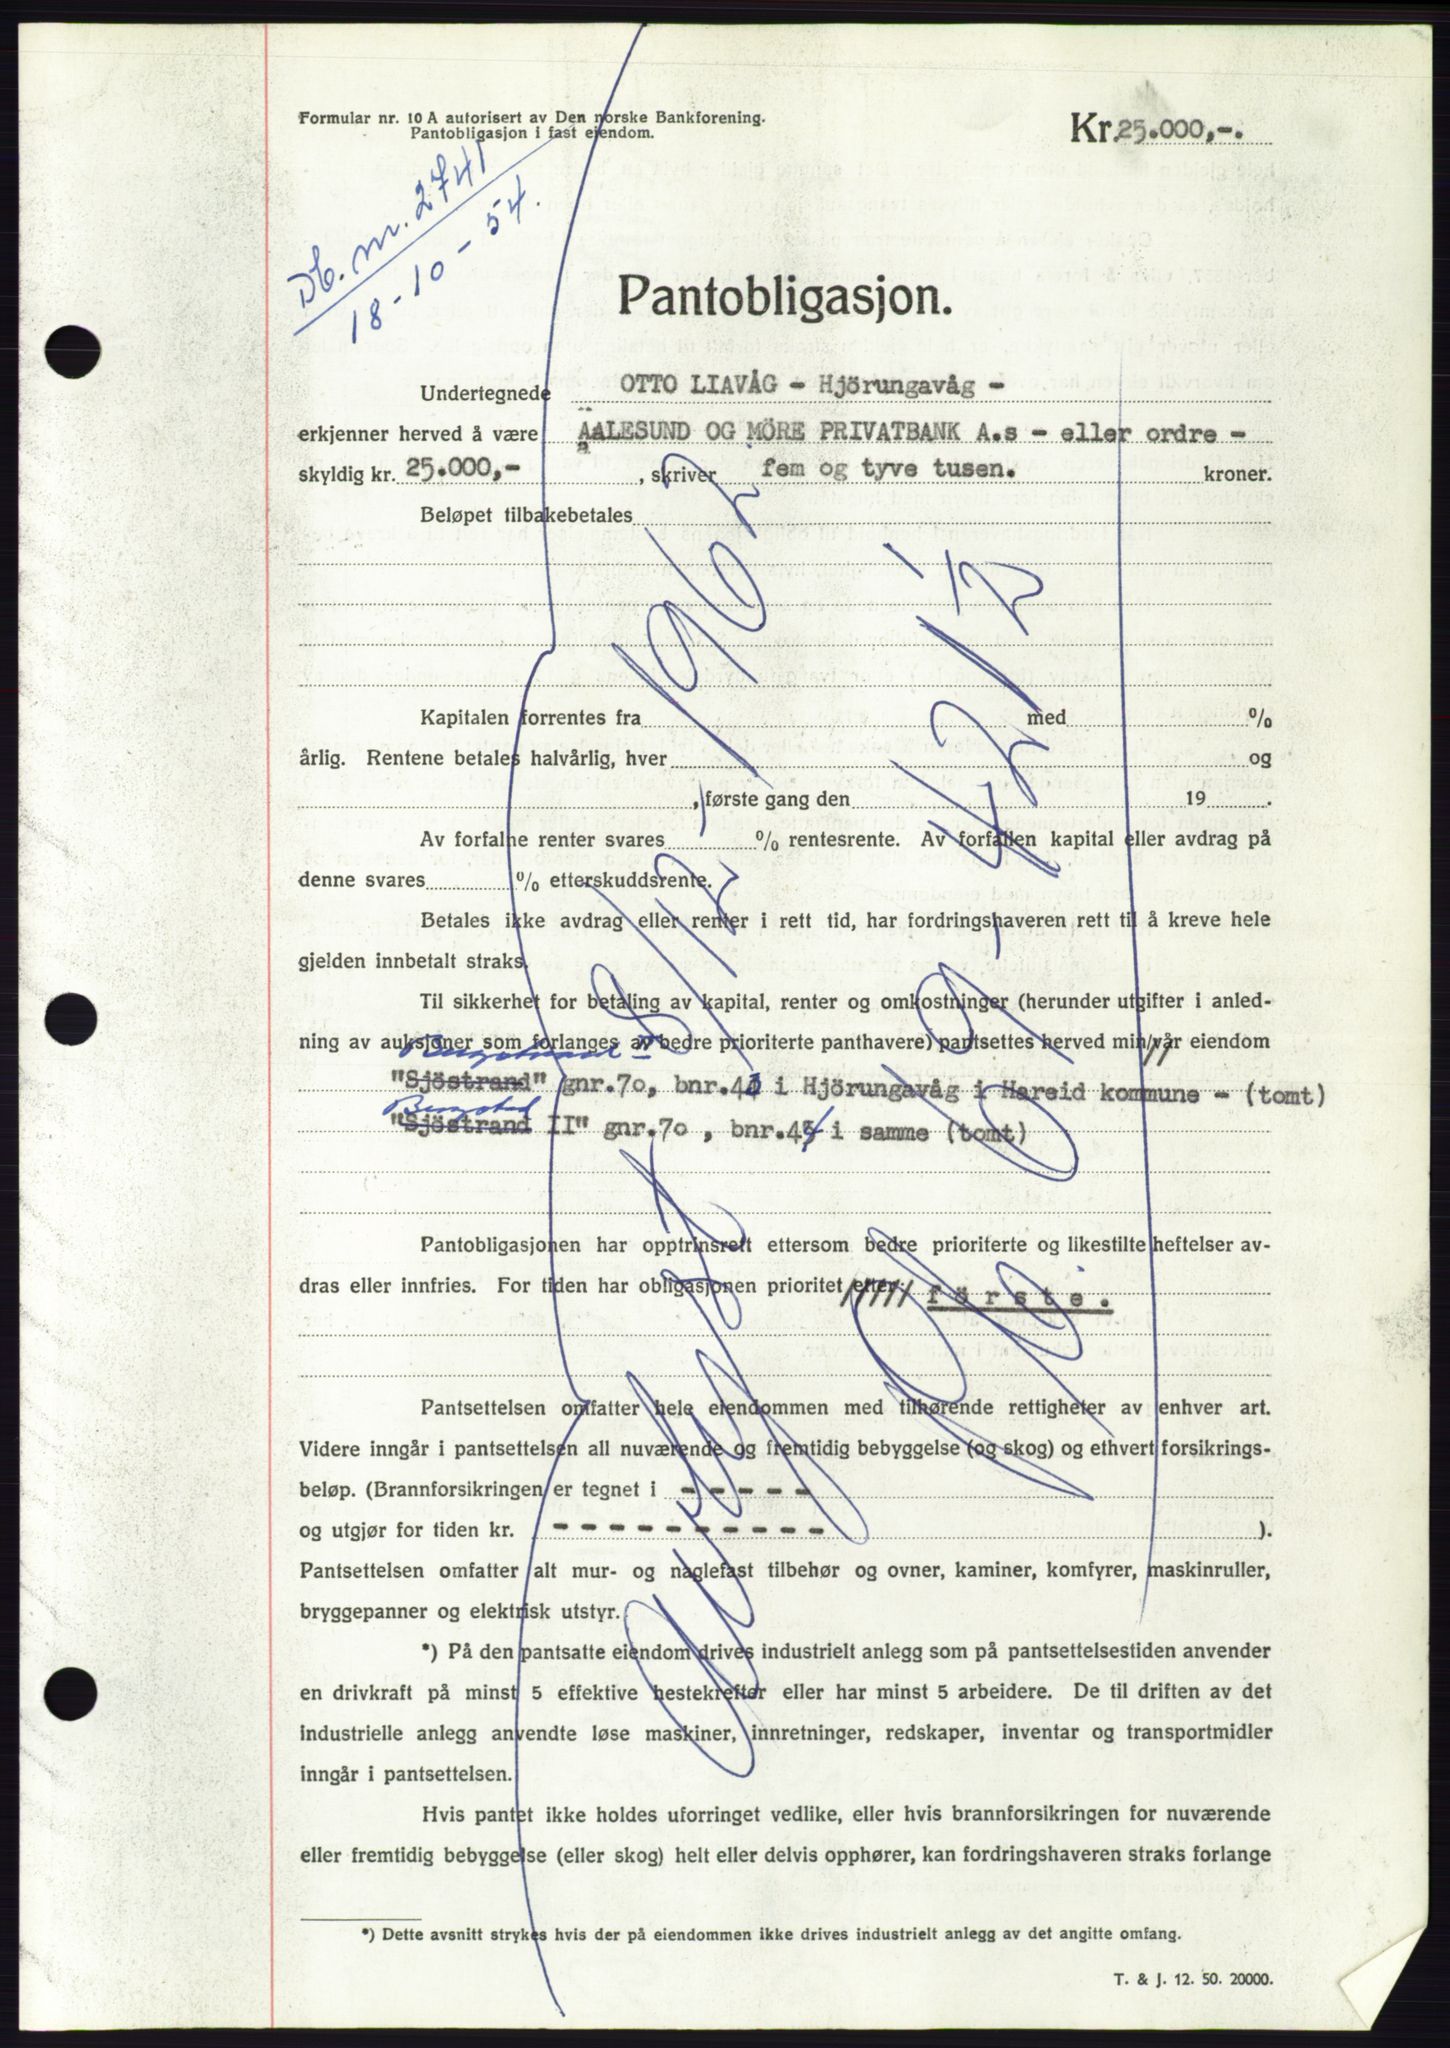 Formular nr. 10 A autorisert av Den norske Bankforening.
Pantobligasjon i fast eiendom.
Kr. 25.000,-.
Db. nr. 2741
18-10-54.
Pantobligasjon.
Undertegnede OTTO LIAVÅG - Hjörungavåg -
erkjenner herved å være AALESUND OG MÖRE PRIVATBANK A.s - eller ordre -
skyldig kr. 25.000,- , skriver fem og tyve tusen. kroner.
Beløpet tilbakebetales
Kapitalen forrentes fra med %
årlig. Rentene betales halvårlig, hver og
, første gang den 19 .
Av forfalne renter svares % rentesrente. Av forfallen kapital eller avdrag på
denne svares % etterskuddsrente.
Betales ikke avdrag eller renter i rett tid, har fordringshaveren rett til å kreve hele
gjelden innbetalt straks.
Til sikkerhet for betaling av kapital, renter og omkostninger (herunder utgifter i anled-
ning av auksjoner som forlanges av bedre prioriterte panthavere) pantsettes herved min/vår eiendom
"Sjöstrand" gnr.70, bnr.4 i Hjörungavåg i Hareid kommune - (tomt)
"Sjöstrand II" gnr.70 , bnr.44 i samme (tomt)
Pantobligasjonen har opptrinsrett ettersom bedre prioriterte og likestilte heftelser av-
dras eller innfries. For tiden har obligasjonen prioritet etter förste.
Pantsettelsen omfatter hele eiendommen med tilhørende rettigheter av enhver art.
Videre inngår i pantsettelsen all nuværende og fremtidig bebyggelse (og skog) og ethvert forsikrings-
beløp. (Brannforsikringen er tegnet i - - - - -
og utgjør for tiden kr. - - - - - - - - - - - ).
Pantsettelsen omfatter alt mur- og naglefast tilbehør og ovner, kaminer, komfyrer, maskinruller,
bryggepanner og elektrisk utstyr.
*) På den pantsatte eiendom drives industrielt anlegg som på pantsettelsestiden anvender
en drivkraft på minst 5 effektive hestekrefter eller har minst 5 arbeidere. De til driften av det
industrielle anlegg anvendte løse maskiner, innretninger, redskaper, inventar og transportmidler
inngår i pantsettelsen.
Hvis pantet ikke holdes uforringet vedlike, eller hvis brannforsikringen for nuværende
eller fremtidig bebyggelse (eller skog) helt eller delvis opphører, kan fordringshaveren straks forlange
*) Dette avsnitt strykes hvis der på eiendommen ikke drives industrielt anlegg av det angitte omfang.
T. & J. 12. 50. 20000.
Avlyst
8/12 1962